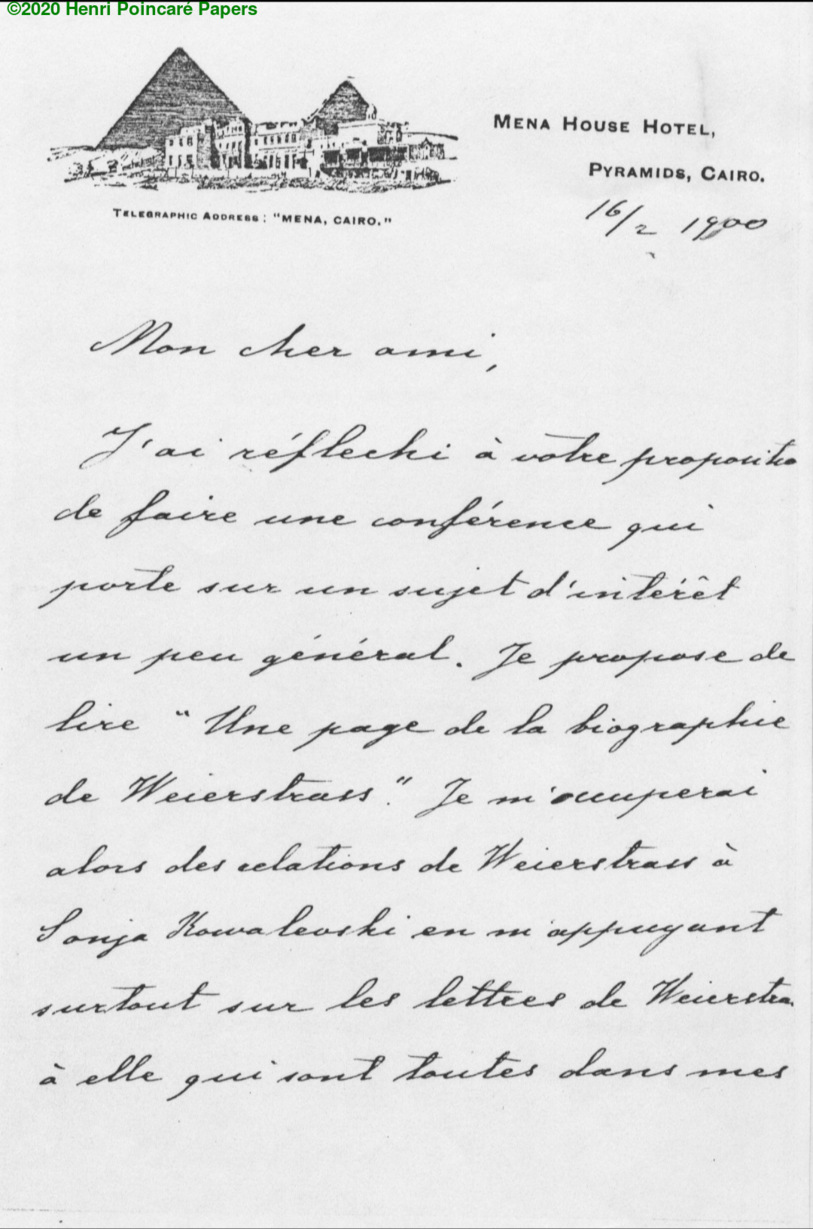 ©2020 Henri Poincaré Papers
MENA HOUSE HOTEL,
PYRAMIDS, CAIRO.
TELEGRAPHIC ADDRESS: "MENA, CAIRO."
16/2 1900
Mon cher ami,
J'ai réflechi à votre propositio
de faire une conférence qui
porte sur un sujet d'intérêt
un peu général. Je propose de
lire "Une page de la biographie
de Weierstrass." Je m'occuperai
alors des relations de Weierstrass à
Sonja Kowalevski en m'appuyant
surtout sur les lettres de Weierstra
à elle qui sont toutes dans mes